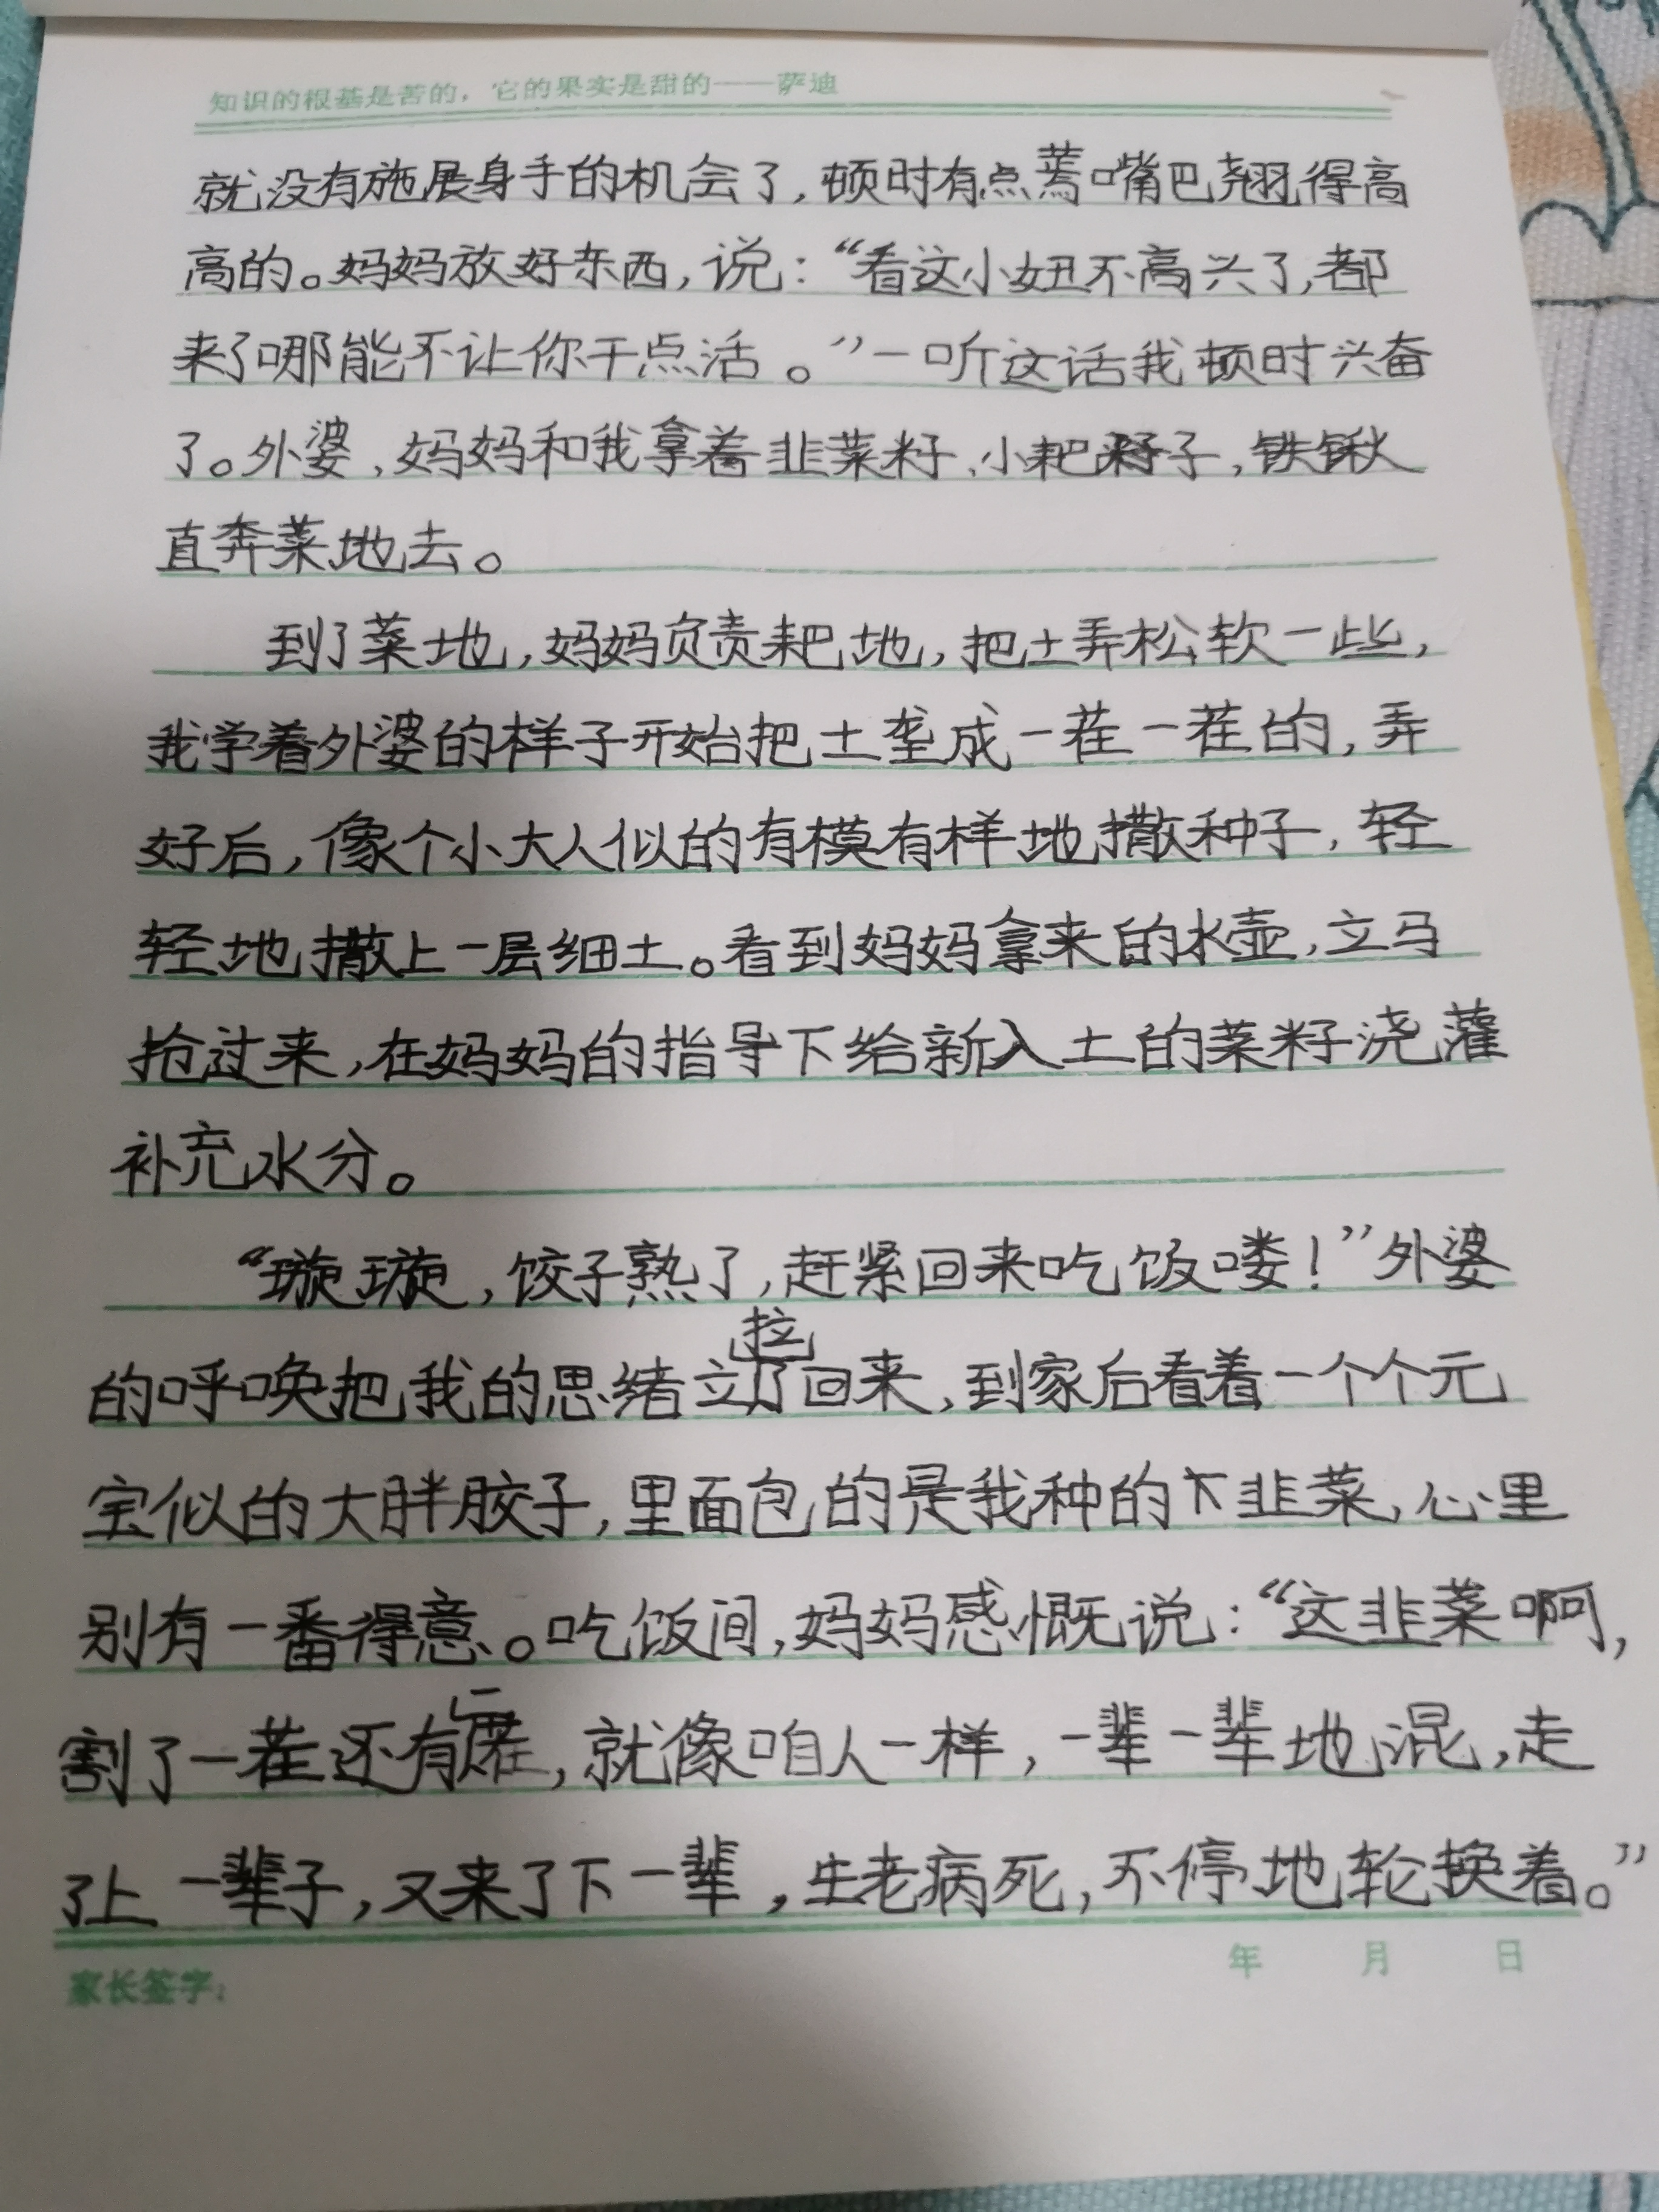 知识的根基是苦的，它的果实是甜的——萨迪
就没有施展身手的机会了，顿时有点蔫嘴巴翘得高
高的。妈妈放好东西，说：“看这小妞不高兴了，都
来了哪能不让你干点活。”一听这话我顿时兴奋
了。外婆，妈妈和我拿着韭菜籽、小耙子，铁锹
直奔菜地去。
到了菜地，妈妈负责耙地，把土弄松软一些，
我学着外婆的样子开始把土垄成一茬一茬的，弄
好后，像个小大人似的有模有样地撒种子，轻
轻地撒上一层细土。看到妈妈拿来的水壶，立马
抢过来，在妈妈的指导下给新入土的菜籽浇灌
补充水分。
“璇璇，饺子熟了，赶紧回来吃饭喽！”外婆
的呼唤把我的思绪拉了回来，到家后看着一个个元
宝似的大胖胶子，里面包的是我种的下韭菜，心里
别有一番得意。吃饭间，妈妈感慨说：“这韭菜啊，
割了一茬还有一茬，就像咱人一样，一辈一辈地混，走
了上一辈子，又来了下一辈，生老病死，不停地轮换着。”
年 月 日
家长签字：